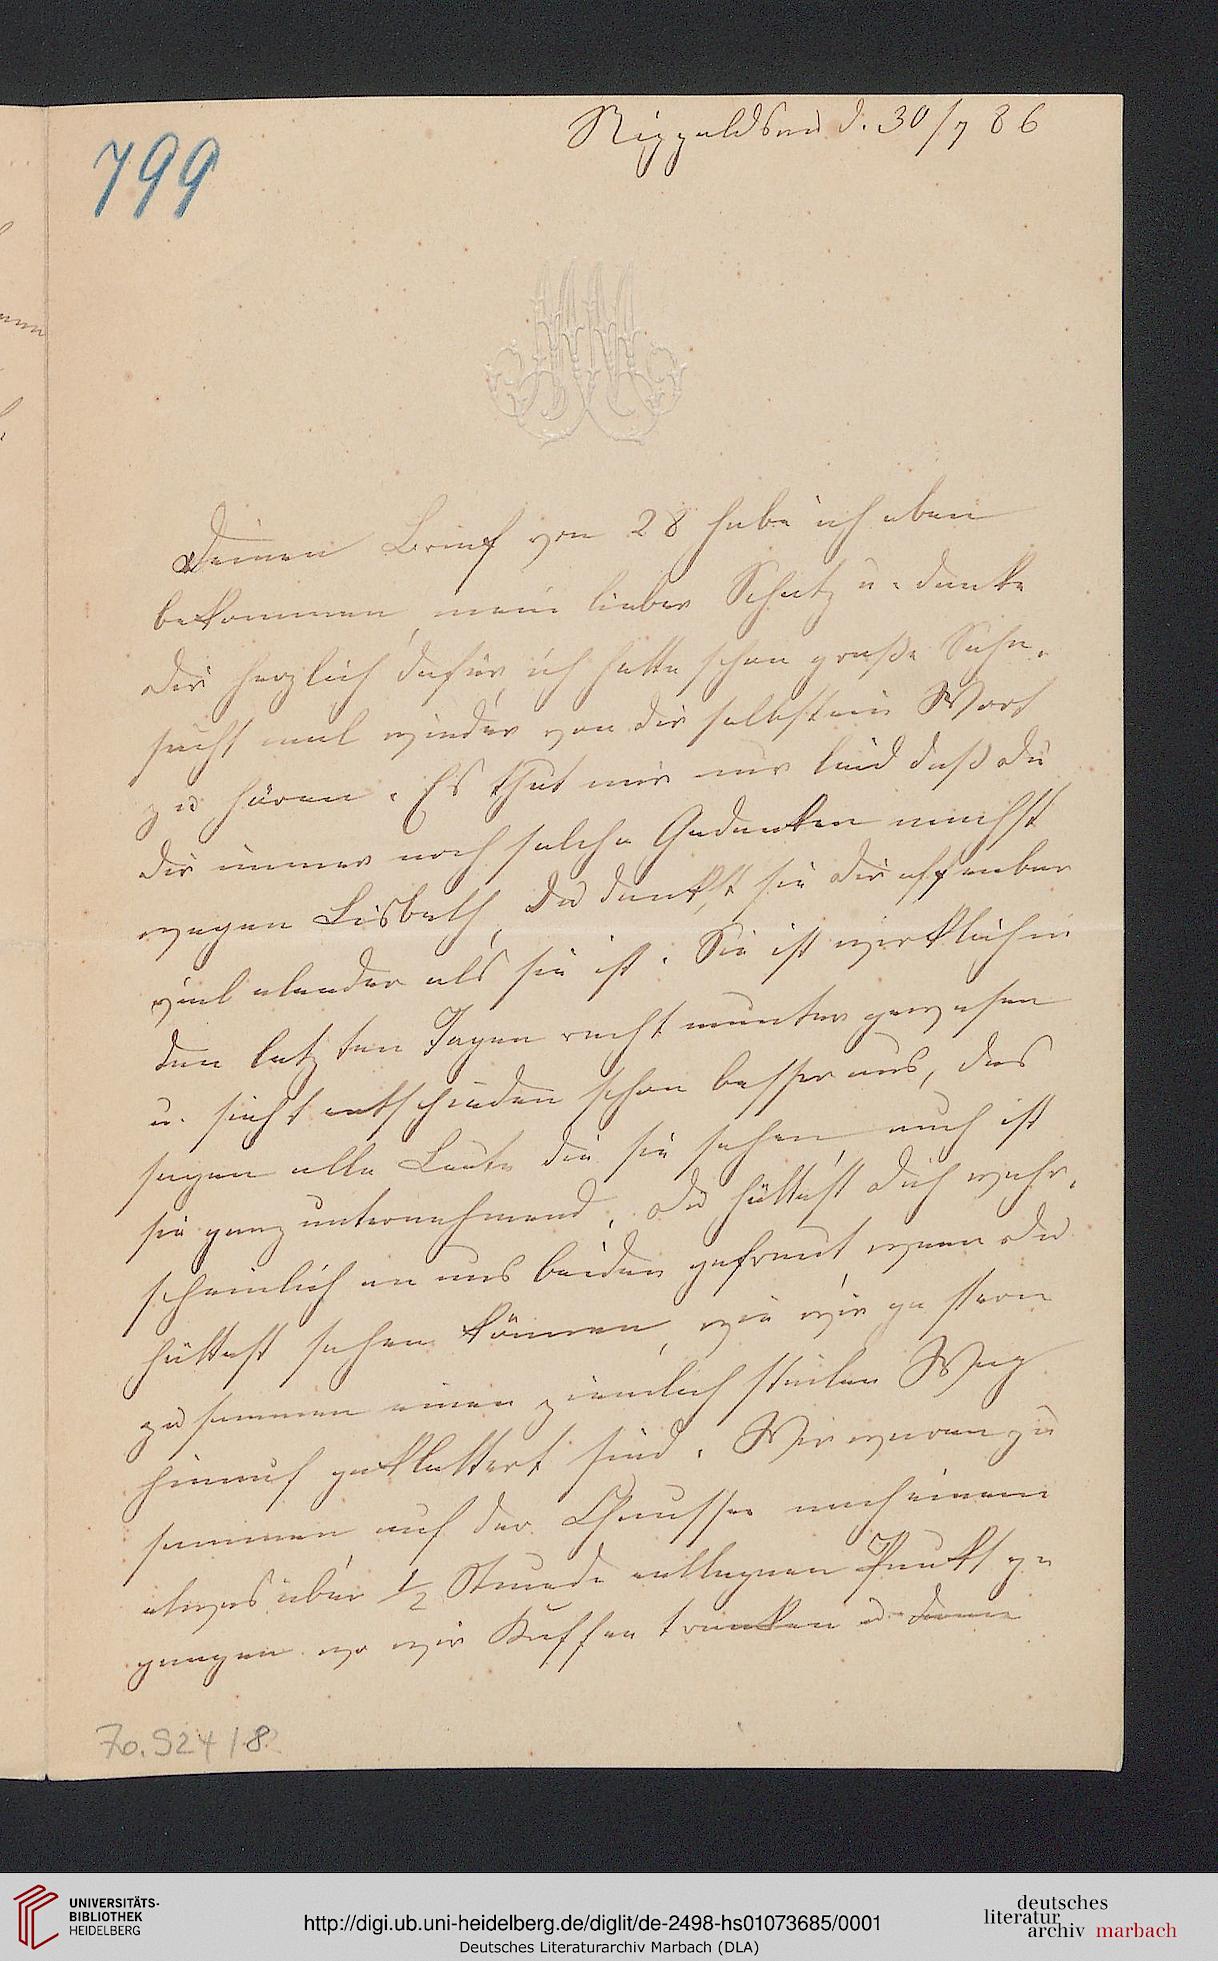 Rippoldsau d. 30/7 86
799
Deinen Brief vom 28 habe ich eben
bekommen, mein lieber Schatz u. danke
dir herzlich dafür, ich hatte schon große Sehn-
sucht mal wieder von dir selbst ein Wort
zu hören. Es thut mir nur leid daß du
dir immer noch solche Gedanken machst
wegen Lisbeth, du denkst sie dir offenbar
viel elender als sie ist. Sie ist wirklich in
den letzten Tagen recht munter gewesen
u. sieht entschieden schon besser aus, das
sagen alle Leute die sie sehen, auch ist
sie ganz unternehmend. du hättest dich wahr-
scheinlich an uns beiden gefreut, wenn du
hättest sehen können, wie wir gestern
zusammen einen ziemlich steilen Weg
hinauf geklettert sind. Wir waren zu
sammen auf der Chaussee nach einem
etwas über 1/2 Stunde entlegnen Punkt ge
gangen wo wir Kaffee tranken u. dann
70.924/8
UNIVERSITÄTS-
BIBLIOTHEK
HEIDELBERG
http://digi.ub.uni-heidelberg.de/diglit/de-2498-hs01073685/0001
Deutsches Literaturarchiv Marbach (DLA)
deutsches
literatur
archiv marbach